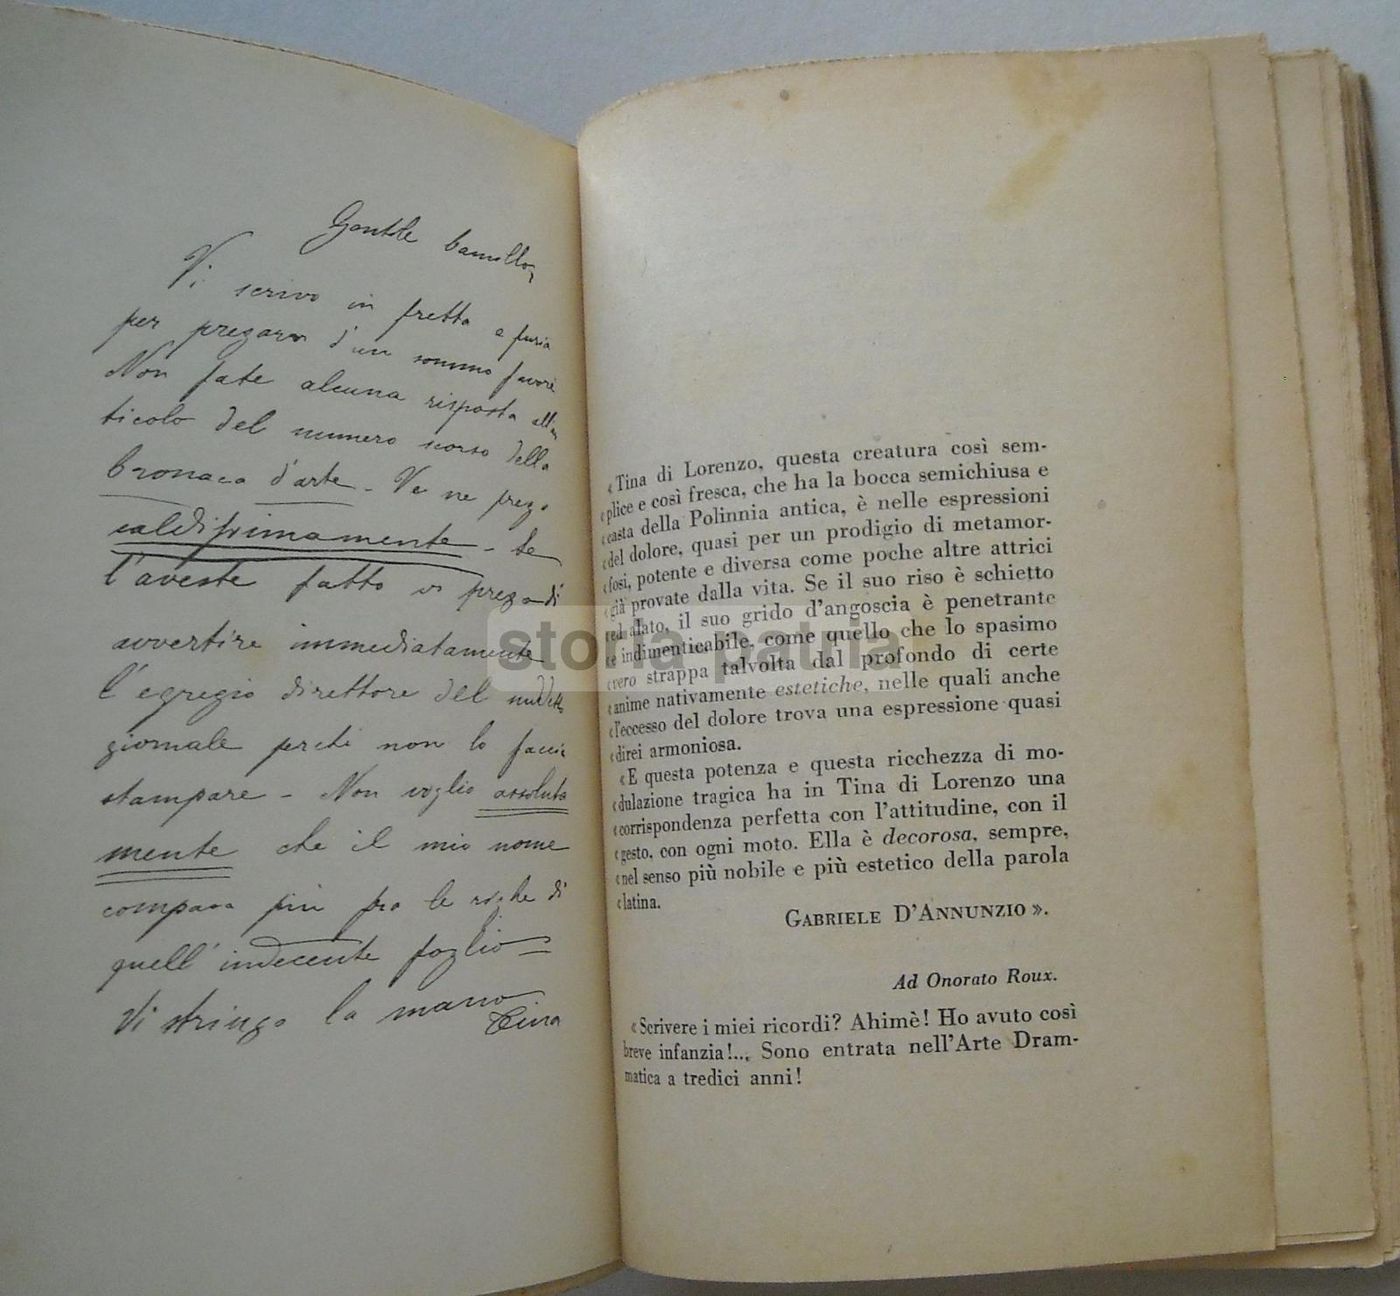 Gentile Camillo,
Vi scrivo in fretta e furia
per pregarvi d'un sommo favore
Non fate alcuna risposta all'ar
ticolo del numero scorso della
Cronaca d'arte - Ve ne prego
caldissimamente - Se
l'aveste fatto vi prego di
avvertire immediatamente
l'egregio direttore del suddetto
giornale perchè non lo faccia
stampare - Non voglio assoluta
mente che il mio nome
compaia più fra le righe di
quell'indecente foglio -
Vi stringo la mano
Tina
«Tina di Lorenzo, questa creatura così sem-
«plice e così fresca, che ha la bocca semichiusa e
«casta della Polinnia antica, è nelle espressioni
«del dolore, quasi per un prodigio di metamor-
«fosi, potente e diversa come poche altre attrici
«già provate dalla vita. Se il suo riso è schietto
«ed alato, il suo grido d'angoscia è penetrante
«e indimenticabile, come quello che lo spasimo
«vero strappa talvolta dal profondo di certe
«anime nativamente estetiche, nelle quali anche
«l'eccesso del dolore trova una espressione quasi
«direi armoniosa.
«E questa potenza e questa ricchezza di mo-
«dulazione tragica ha in Tina di Lorenzo una
«corrispondenza perfetta con l'attitudine, con il
«gesto, con ogni moto. Ella è decorosa, sempre,
«nel senso più nobile e più estetico della parola
«latina.
GABRIELE D'ANNUNZIO».
Ad Onorato Roux.
«Scrivere i miei ricordi? Ahimè! Ho avuto così
breve infanzia!... Sono entrata nell'Arte Dram-
matica a tredici anni!
storia patria